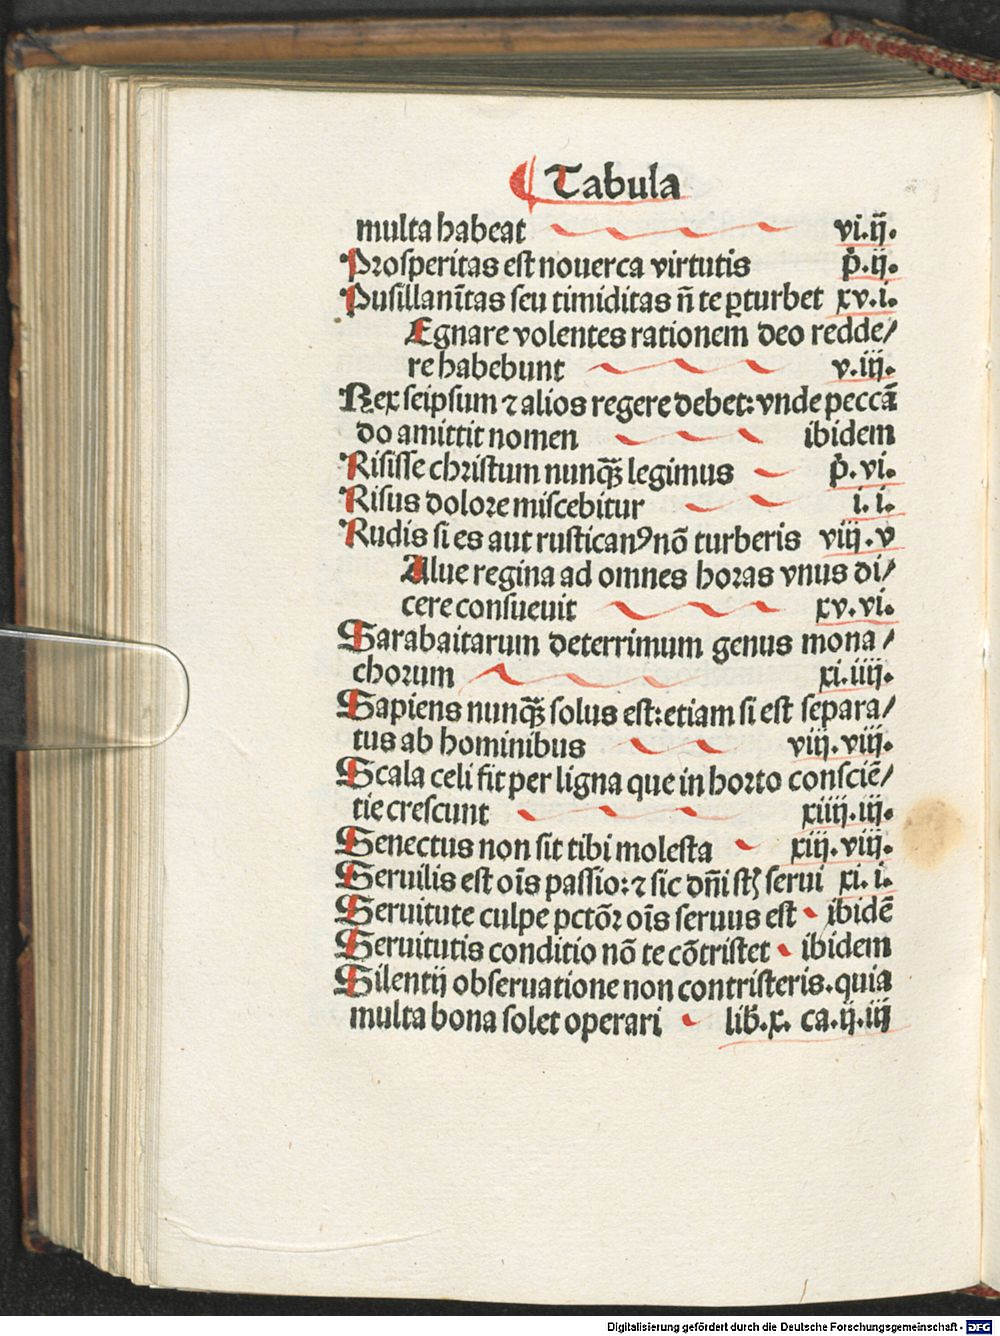 ⸿ Tabula
multa habeat vi.ij.
Prosperitas est nouerca virtutis p̄.ij.
Pusillanītas seu timiditas n̄ te ꝑturbet xv.i.
Egnare volentes rationem deo redde/
re habebunt v.iij.
Rex seipsum ⁊ alios regere debet: vnde peccā
do amittit nomen ibidem
Risisse christum nunqꝫ legimus p̄.vi.
Risus dolore miscebitur i.i.
Rudis si es aut rusticanꝰ nō turberis viij.v
Alue regina ad omnes horas vnus di/
cere consueuit xv.vi.
Sarabaitarum deterrimum genus mona/
chorum xi.iiij.
Sapiens nunqꝫ solus est: etiam si est separa/
tus ab hominibus viij.viij.
Scala celi fit per ligna que in horto consciē/
tie crescunt xiiij.iij.
Senectus non sit tibi molesta xiij.viij.
Seruilis est oīs passio: ⁊ sic dn̄i st̄ serui xi.i.
Seruitute culpe pctōꝝ oīs seruus est ibidē
Seruitutis conditio nō te cōtristet ibidem
Silentij obseruatione non contristeris. quia
multa bona solet operari lib̄.x. ca.ij.iij
Digitalisierung gefördert durch die Deutsche Forschungsgemeinschaft - DFG